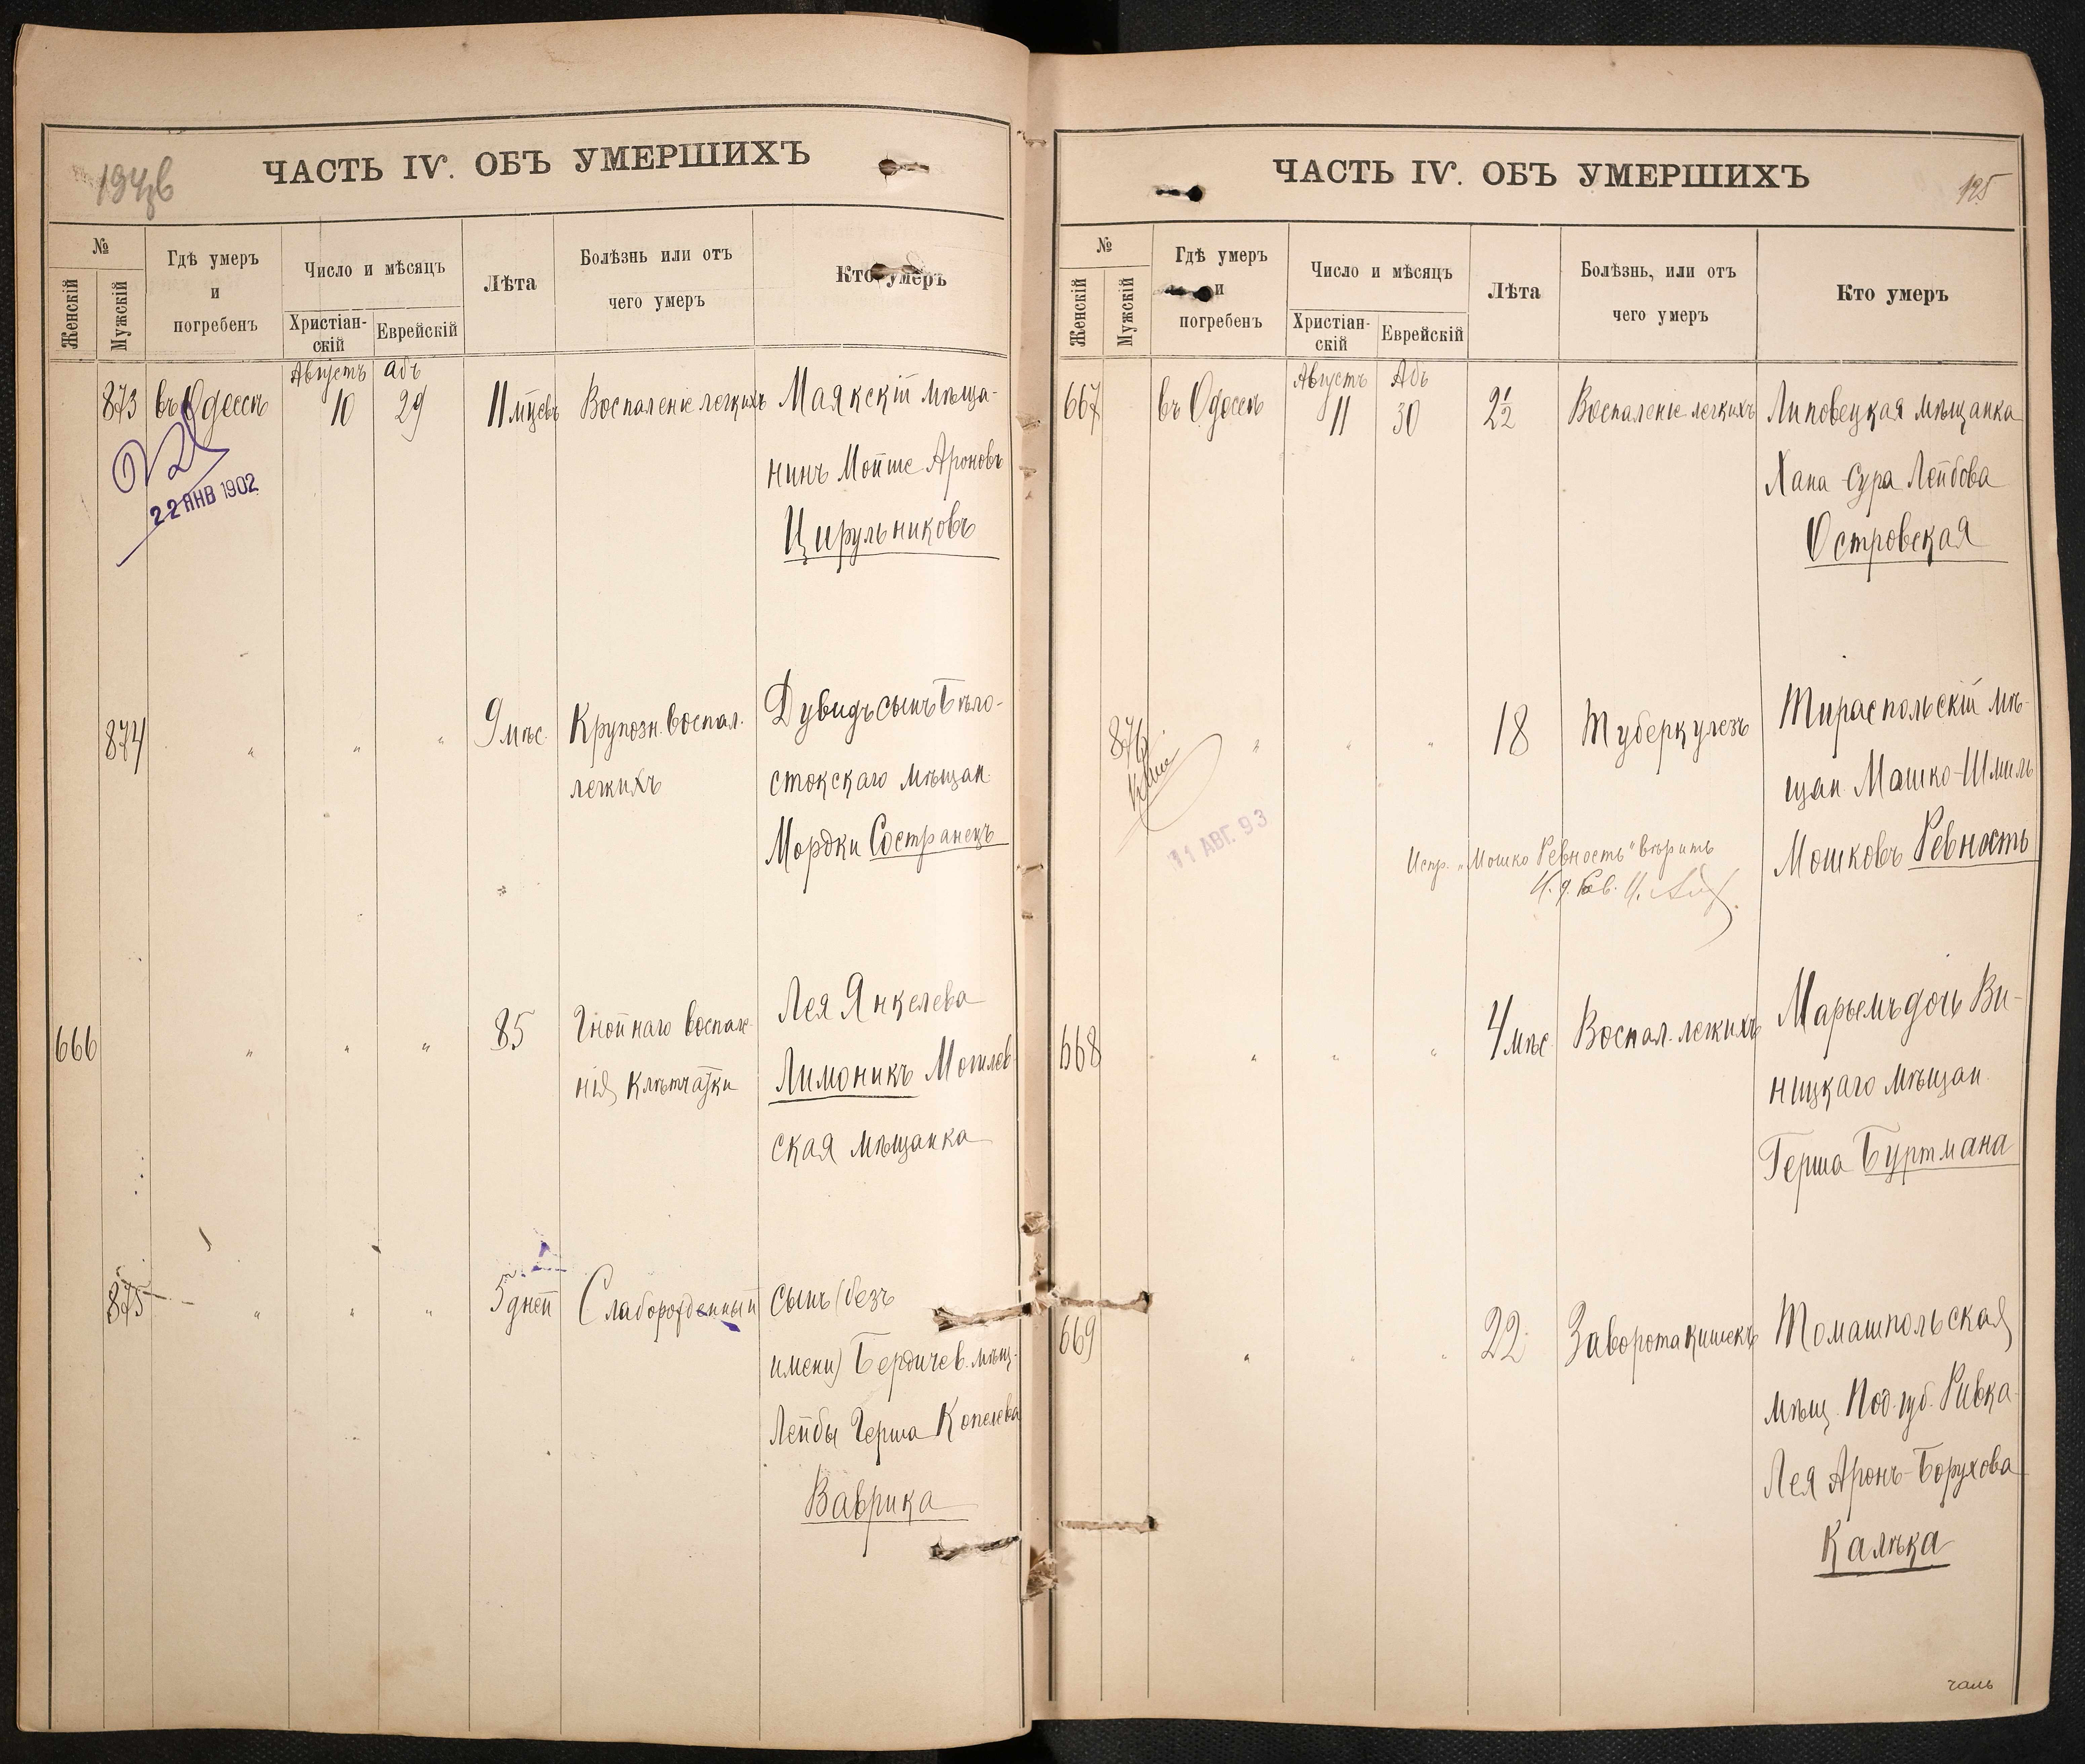 ЧАСТЬ IV. ОБЪ УМЕРШИХЪ
№
Женскій
Мужскій
Гдѣ умеръ
и
погребенъ
Число и мѣсяцъ
Христіан-
скій
Еврейскій
Лѣта
Болѣзнь или отъ
чего умеръ
Кто умеръ
Августъ Абъ
873 въ Одессѣ 10 29 11 мцевъ Воспаленіе легкихъ Маякскій мѣща-
нинъ Мойше Ароновъ
Цирульниковъ
22 ЯНВ 1902
874 " " " 9 мѣс. Крупозн. воспал. Дувидъ сынъ Бѣло-
легкихъ стокскаго мѣщан.
Мордки Состранецъ
666 " " " 85 Гнойнаго воспале- Лея Янкелева
нія клѣтчатки Лимоникъ Могилев-
ская мѣщанка
875 " " " 5 дней Слаборожденный сынъ (безъ
имени) Бердичев. мѣщ.
Лейбы Герша Копелева
Ваврика
ЧАСТЬ IV. ОБЪ УМЕРШИХЪ
125
№
Женскій
Мужскій
Гдѣ умеръ
и
погребенъ
Число и мѣсяцъ
Христіан-
скій
Еврейскій
Лѣта
Болѣзнь, или отъ
чего умеръ
Кто умеръ
Августъ Абъ
667 въ Одессѣ 11 30 2½ Воспаленіе легкихъ Липовецкая мѣщанка
Хана Сура Лейбова
Островская
876 " " " 18 Туберкулезъ Тираспольскій мѣ-
щан. Машко-Шмиль
Мошковъ Ревность
11 АВГ. 93
Испр. „Мошко Ревность" вѣрить
668 " " " 4 мѣс. Воспал. легкихъ Марьемъ дочь Ви-
ницкаго мѣщан.
Герша Буртмана
669 " " " 22 Заворота кишекъ Томашпольская
мѣщ. Под. губ. Ривка-
Лея Аронъ-Борухова
Калѣка